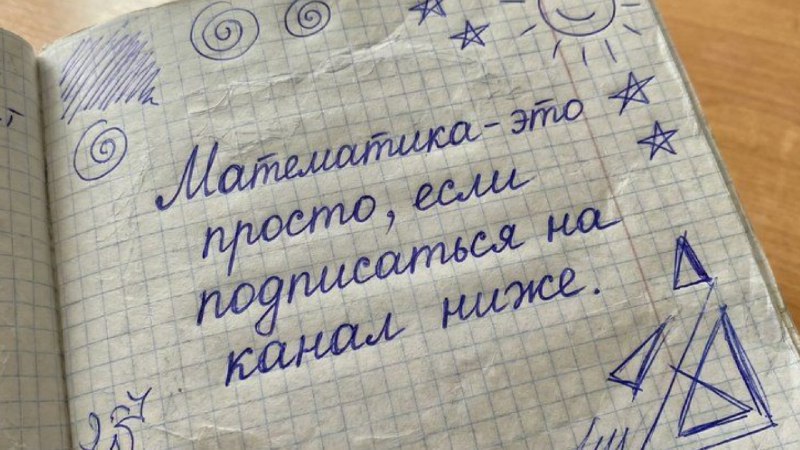 Математика - это
просто, если
подписаться на
канал ниже.